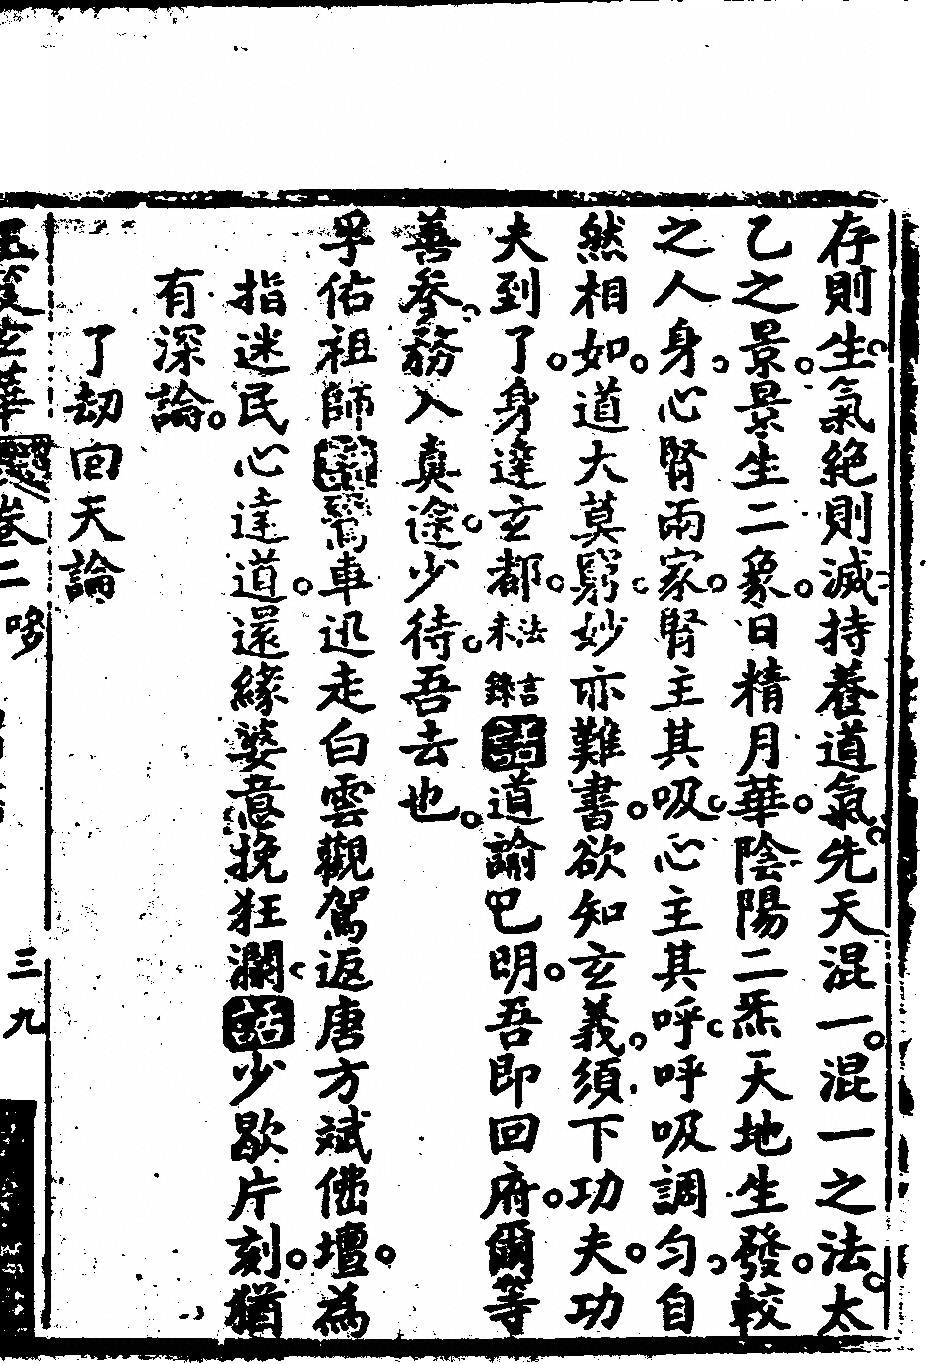 存則生。氣絕則滅。持養道氣。先天混一。混一之法。太
乙之景。景生二象。日精月華。陰陽二炁。天地生發。較
之人身。心腎兩家。腎主其吸。心主其呼。呼吸調勻。自
然相如。道大莫窮。妙亦難書。欲知玄義。須下功夫。功
夫到了。身達玄都。未法錄言 話 道諭巳明。吾即回府。爾等
善參。務入真途。少待。吾去也。
孚佑祖師 鸞車迅走白雲觀。駕返唐方斌佛壇。為
指迷民心達道。還緣婆意挽狂瀾。話 少歇片刻。猶
有深論。
了劫回天論
玄華 卷二 三九